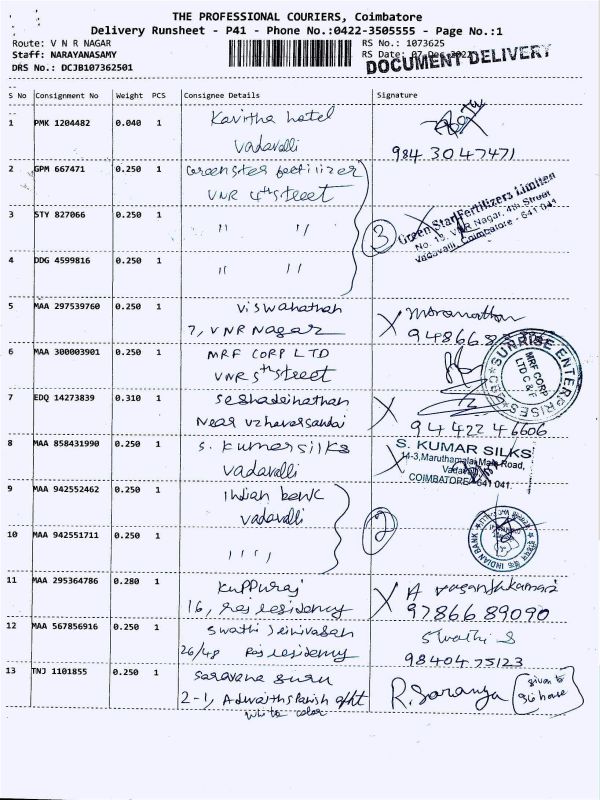 THE PROFESSIONAL COURIERS, Coimbatore
Delivery Runsheet - P41 - Phone No.:0422-3505555 - Page No.:1
Route: V N R NAGAR
RS No.: 1073625
Staff: NARAYANASAMY
RS Date: 07-Dec-
DRS No.: DCJB107362501
DOCUMENT DELIVERY
S No Consignment No Weight PCS Consignee Details Signature
1 PMK 1204482 0.040 1 Kavitha hotel
Vadavalli
98430 47471
2 GPM 667471 0.250 1 Greenster fertilizer
VNR 4th street
3 STY 827066 0.250 1 " "
3
Green Star Fertilizers Limited
No. 19, VNR Nagar, 4th Street
Vadavalli, Coimbatore - 641 041
4 DDG 4599816 0.250 1 " "
5 MAA 297539760 0.250 1 Viswanathan
7, VNR Nagar
6 MAA 300003901 0.250 1 MRF CORP LTD
VNR 5th street
SUNRISE ENTERPRISES
MRF CORP
LTD C & F
CBE
7 EDQ 14273839 0.310 1 Seshadrinathan
Near uzhavarsandai
94422 46606
8 MAA 858431990 0.250 1 S. Kumar silks
Vadavalli
S. KUMAR SILKS
14-3, Maruthamalai Main Road,
Vadavalli
COIMBATORE - 641 041.
9 MAA 942552462 0.250 1 Indian bank
Vadavalli
2
10 MAA 942551711 0.250 1 " "
INDIAN BANK
11 MAA 295364786 0.280 1 Kuppuraj
16, raj residency
97866 89090
12 MAA 567856916 0.250 1 Swathi Srinivasan
26/48 Raj residency
Swathi S
98404 75123
13 TNJ 1101855 0.250 1 Saravana guru
2-1,
white color
R. Saranya
given to